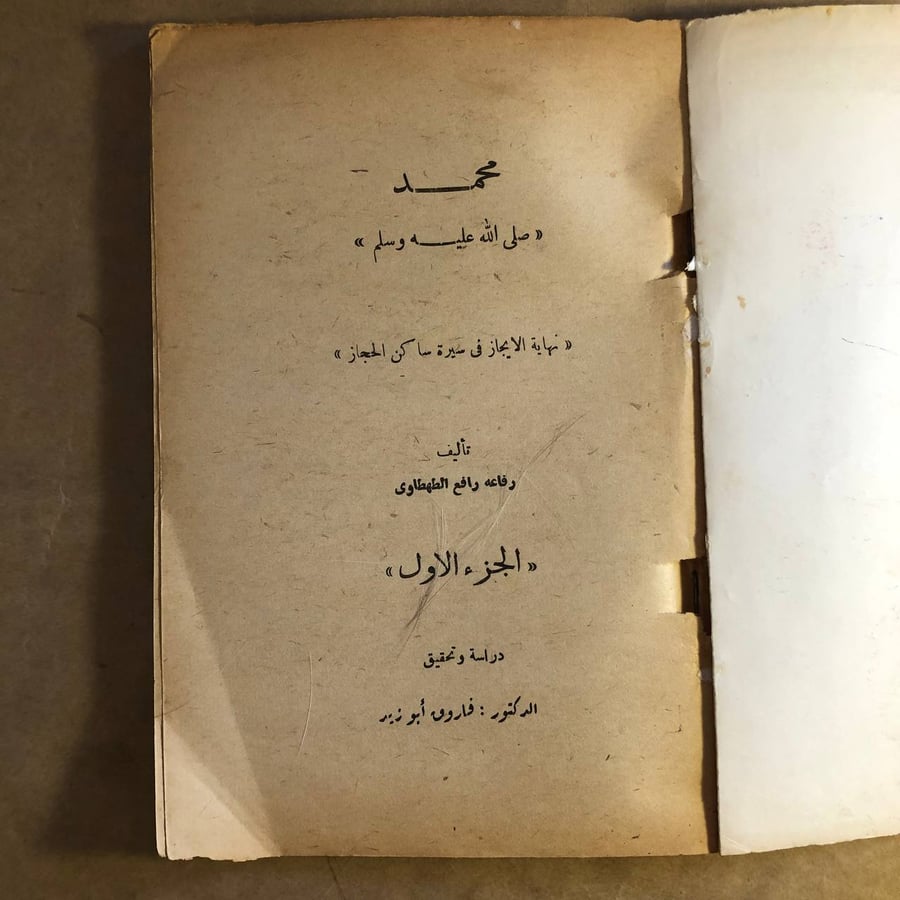 محمد
« صلى الله عليه وسلم »
« نهاية الايجاز فى سيرة ساكن الحجاز »
تأليف
رفاعه رافع الطهطاوى
« الجزء الاول »
دراسة وتحقيق
الدكتور : فاروق أبو زيد